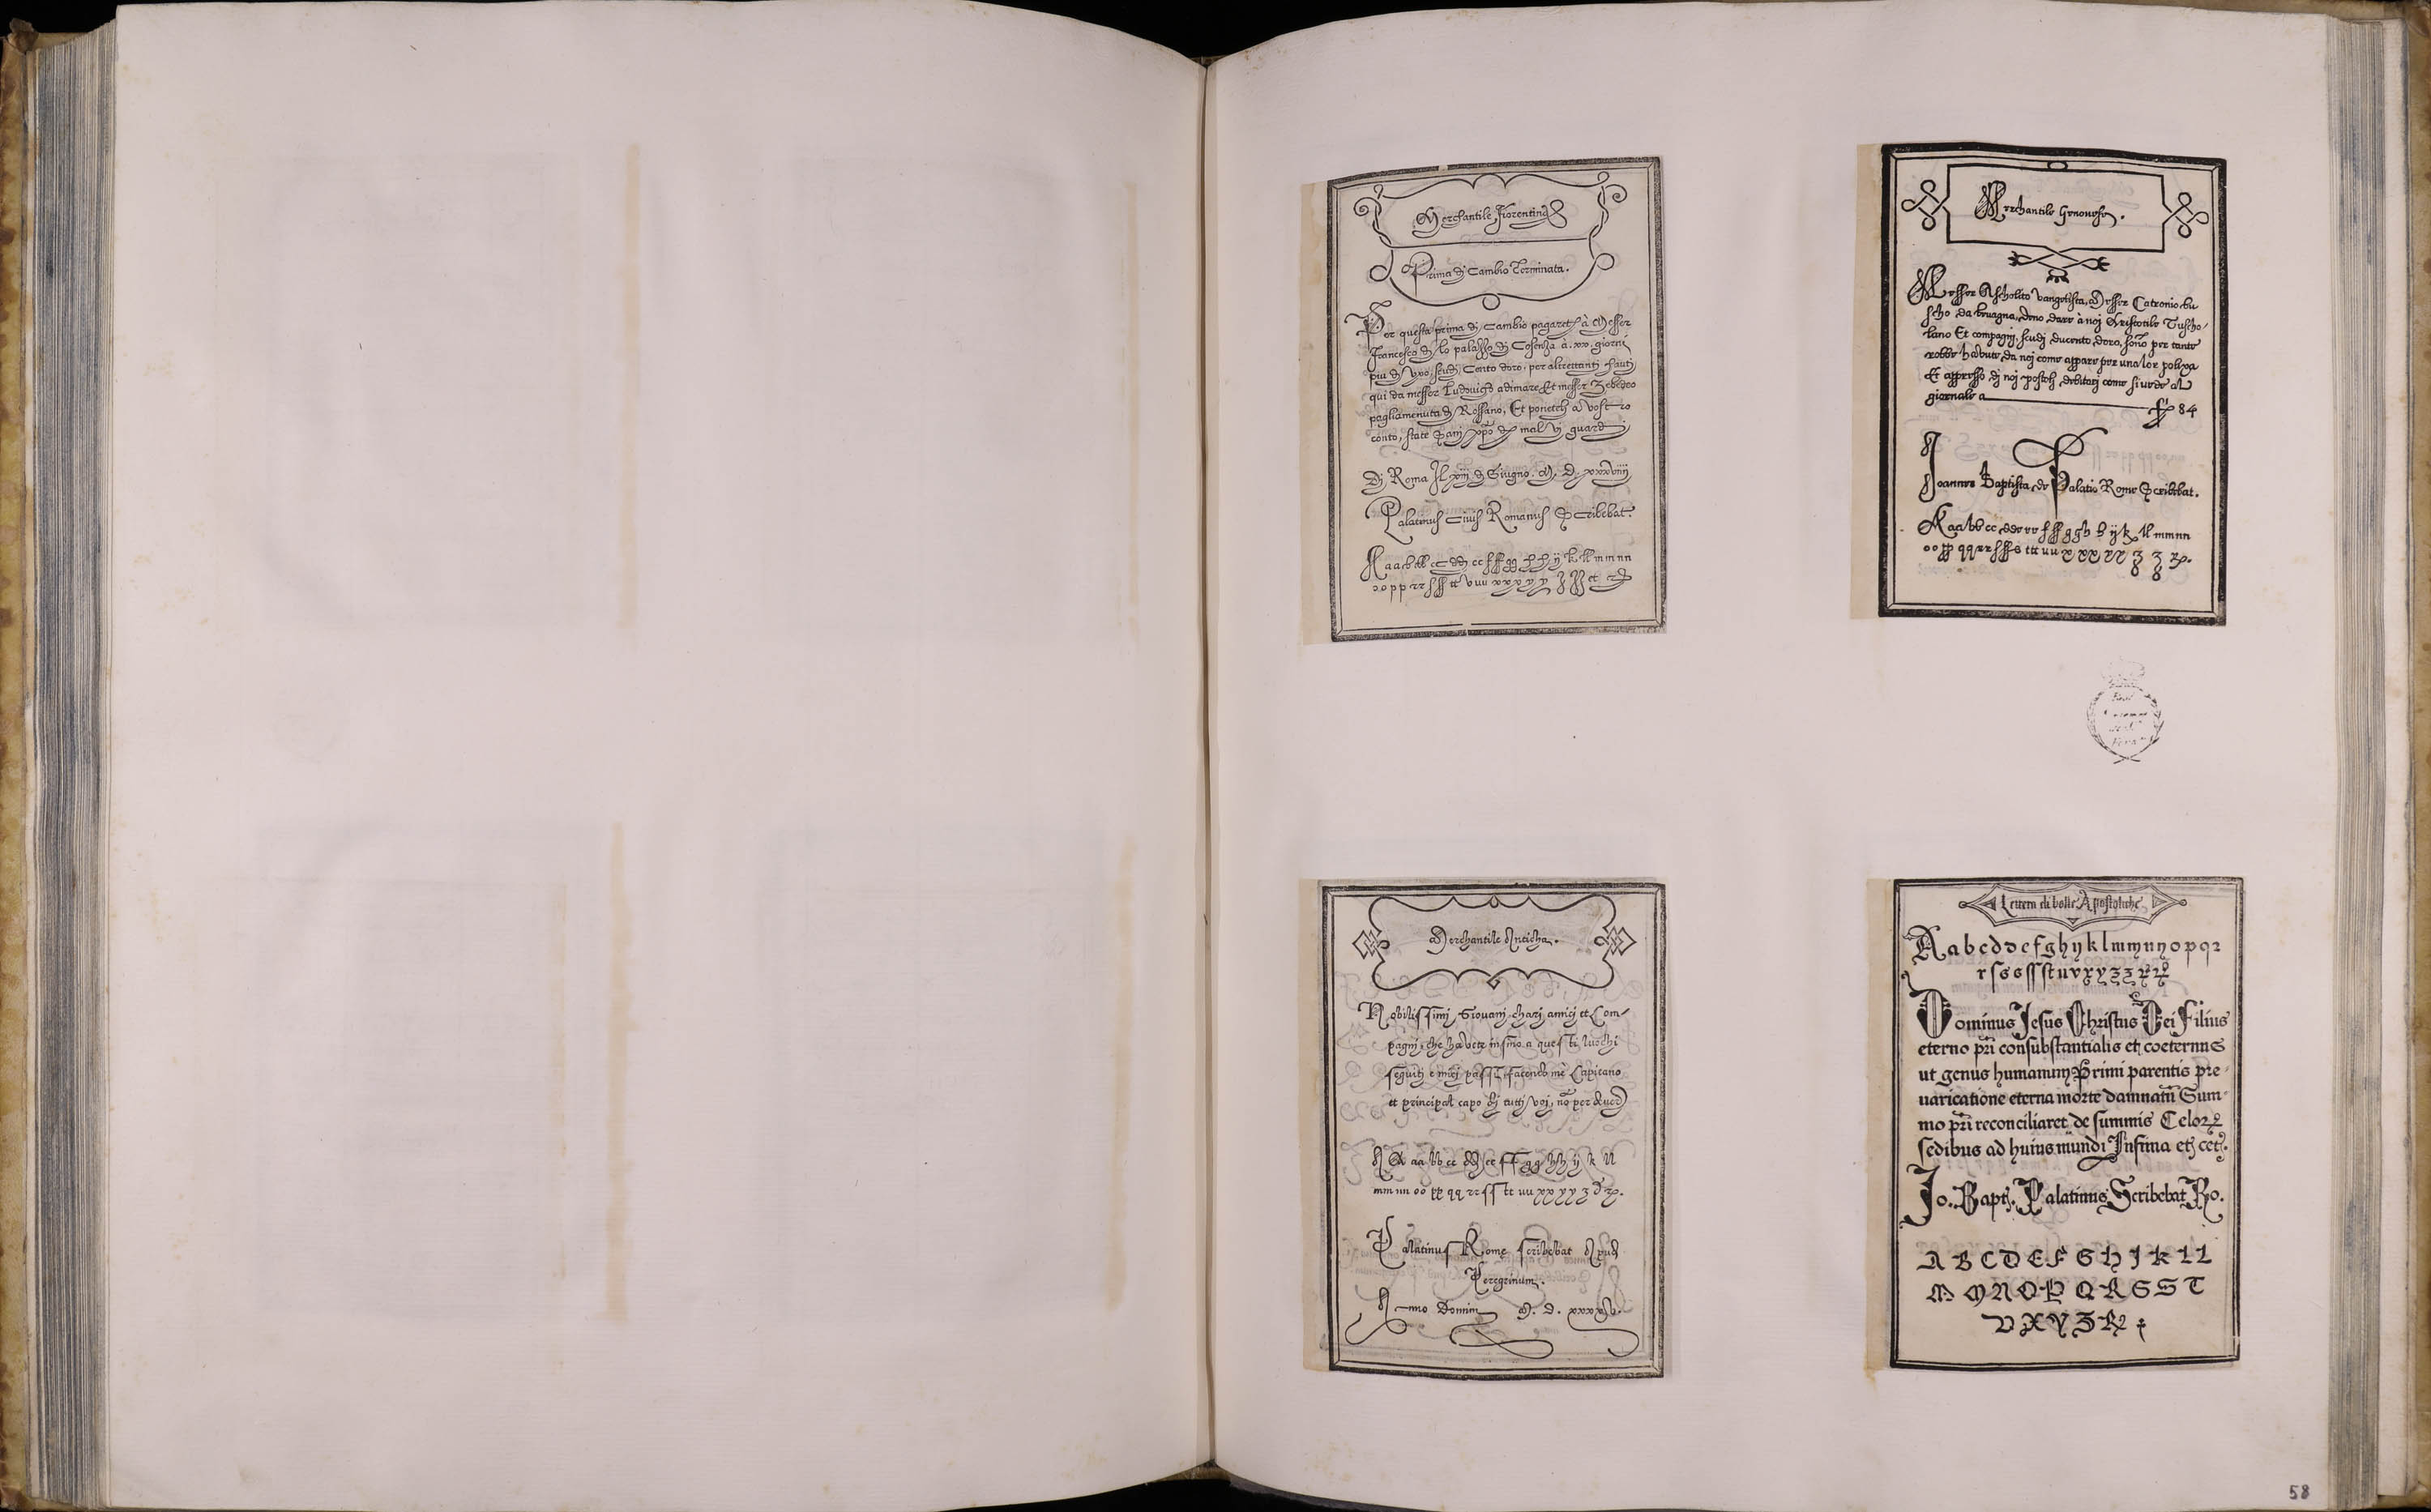 Merchantile Fiorentina
Prima di Cambio Terminata.
Per questa prima di Cambio pagareti à Messer
Francesco di lo palazzo di Cosenza à .xx. giorni
piu di Vxo, scudi Cento doro, per altrettanti hauti
qui da messer Ludouico adimare, Et messer Zebedeo
pagliamenuta di Rossano, Et poneteli a vostro
conto, state Sani, xpo di mal Vi guardi
Di Roma Il xiij di Giugno. M. D. xxxviiij
Palatinus Ciuis Romanus Scribebat.
A a a b bb cc dd ee ff gg hh ij k ll mm nn
oo pp rr ss tt v uu xx y y z et
Merchantile Genouese.
Messer Ascholito Vangelista, Messer Catronio bu
scho da beuagna, deno dare à noi Aristotile Tuscho-
lano Et compagni, scudi ducento, doro, sono per tante
robbe habute, da noi come appare per una lor poliza
Et appresso di noi postoli debitori come si uede al
giornale a 84
Joannes Baptista de Palatio Rome Scribebat.
A aa bb cc dd ee ff ggh h ij k ll mmnn
oo pp qq rr ss s ttt uu x xx yy z z
Merchantile Anticha.
Nobilissimi Giouani chari amici et Com-
pagni, che havete insino a questi luochi
seguiti e miei passi, facendo me Capitano
et principal capo di tutti Voi, no per
A A aa bb cc dd ee ff gg hh ij k ll
mm nn oo pp qq rr ss tt uu xx yy z
Palatinus Rome scribebat Apud
Peregrinum.
Anno Domini M. D. xxxxv.
Lettera di bolle Apostoliche
A a b c d d e f g h y k l m m n n o p q r
r s s s ss st u v x y z z
Dominus Jesus Christus Dei Filius
eterno pri consubstantialis et coeternus
ut genus humanum Primi parentis pre-
uaricatione eterna morte damnatu Sum-
mo pri reconciliaret de summis Celorꝝ
sedibus ad huius mundi Infima etc cet.
Jo. Bapt. Palatinus Scribebat Ro.
A B C D E F G H I K L L
M M N O P Q R S S T
V X Y Z
58